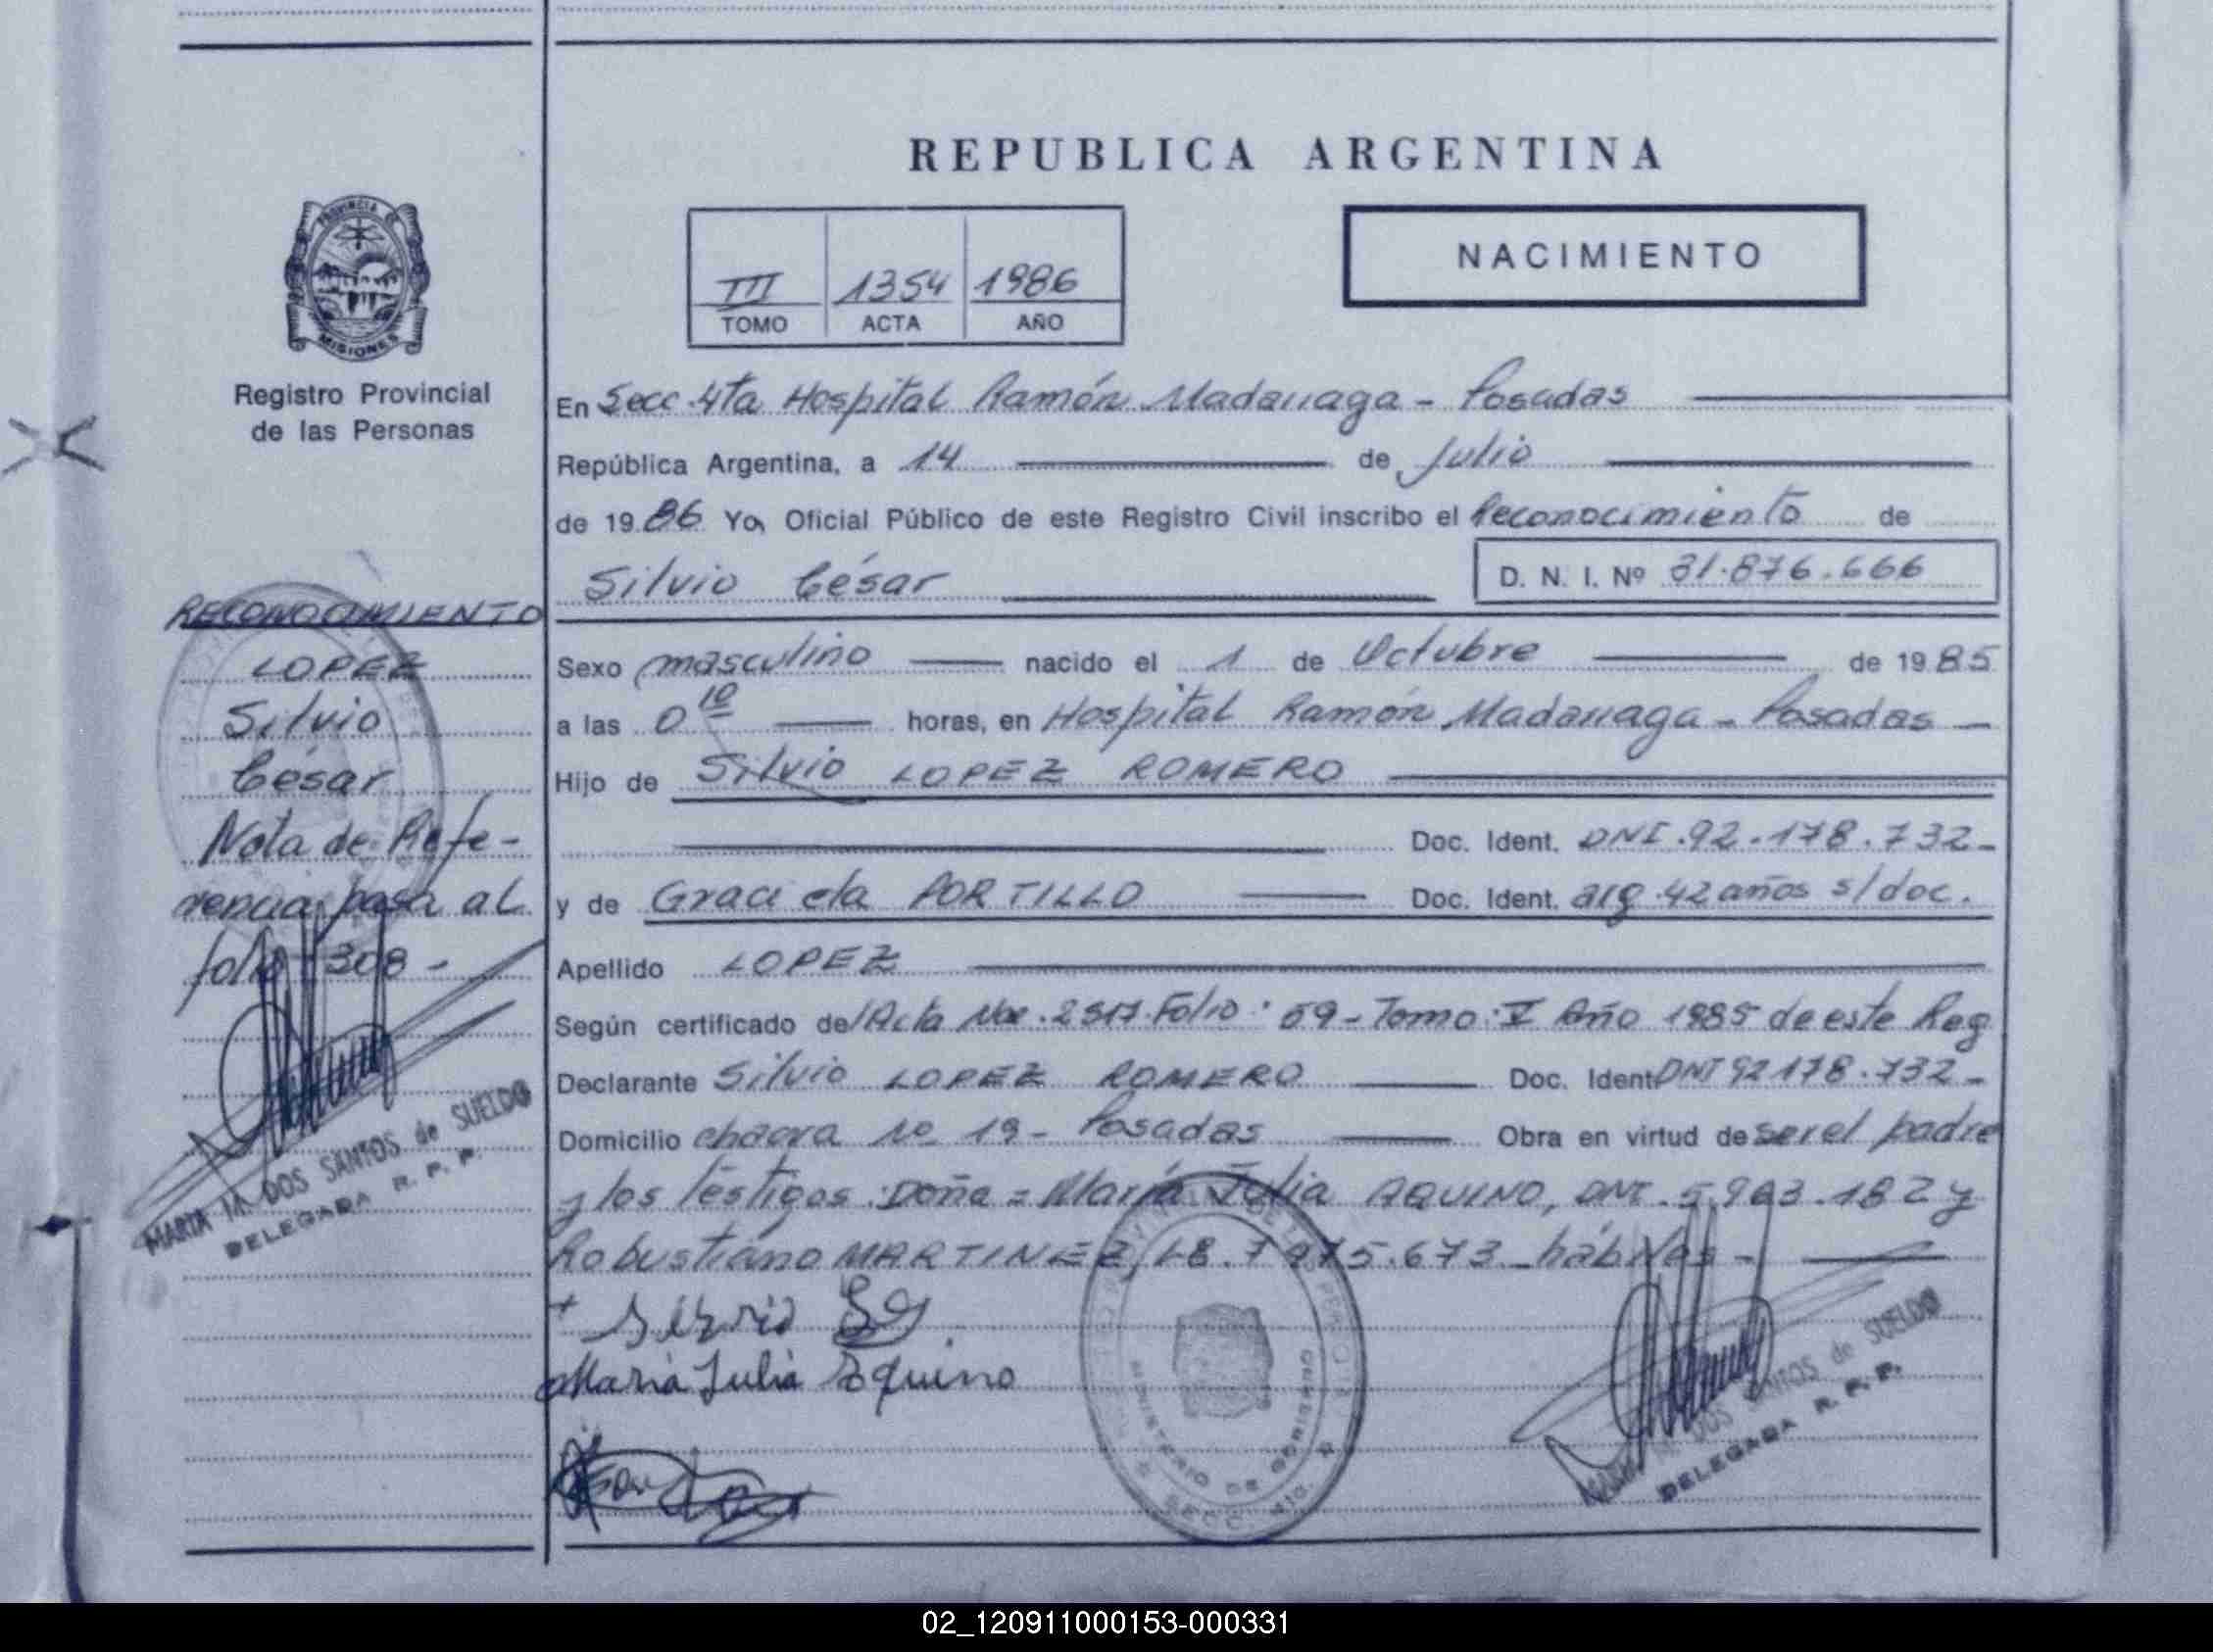 REPUBLICA ARGENTINA
PROVINCIA DE
MISIONES
Registro Provincial
de las Personas
III 1354 1986
TOMO ACTA AÑO
NACIMIENTO
En Secc. 4ta Hospital Ramón Madariaga - Posadas
República Argentina, a 14 de Julio
de 1986 Yo, Oficial Público de este Registro Civil inscribo el Reconocimiento de
Silvio César
D. N. I. Nº 31.876.666
Sexo masculino nacido el 1 de Octubre de 1985
a las 0 10 horas, en Hospital Ramón Madariaga - Posadas -
Hijo de Silvio LOPEZ ROMERO
Doc. Ident. DNI.92.178.732-
y de Graciela PORTILLO Doc. Ident. arg. 42 años s/doc.
Apellido LOPEZ
Según certificado del Acta Nro. 2517 Folio: 59 - Tomo: V Año 1985 de este Reg
Declarante Silvio LOPEZ ROMERO Doc. Ident DNI 92178.732-
Domicilio chacra Nº 19 - Posadas Obra en virtud de ser el padre
y los testigos: Doña = María Julia AQUINO, DNI. 5.963.182 y
Robustiano MARTINEZ, 7 675.673 hábiles -
Silvio
Maria Julia Aquino
RECONOCIMIENTO
LOPEZ
Silvio
César
Nota de Refe-
rencia pasa al
folio 308 -
MARIA M. DOS SANTOS de SUELDO
DELEGADA R. P. P.
MINISTERIO DE GOBIERNO
SECC. 4ta.
MARIA M. DOS SANTOS de SUELDO
DELEGADA R. P. P.
02_120911000153-000331